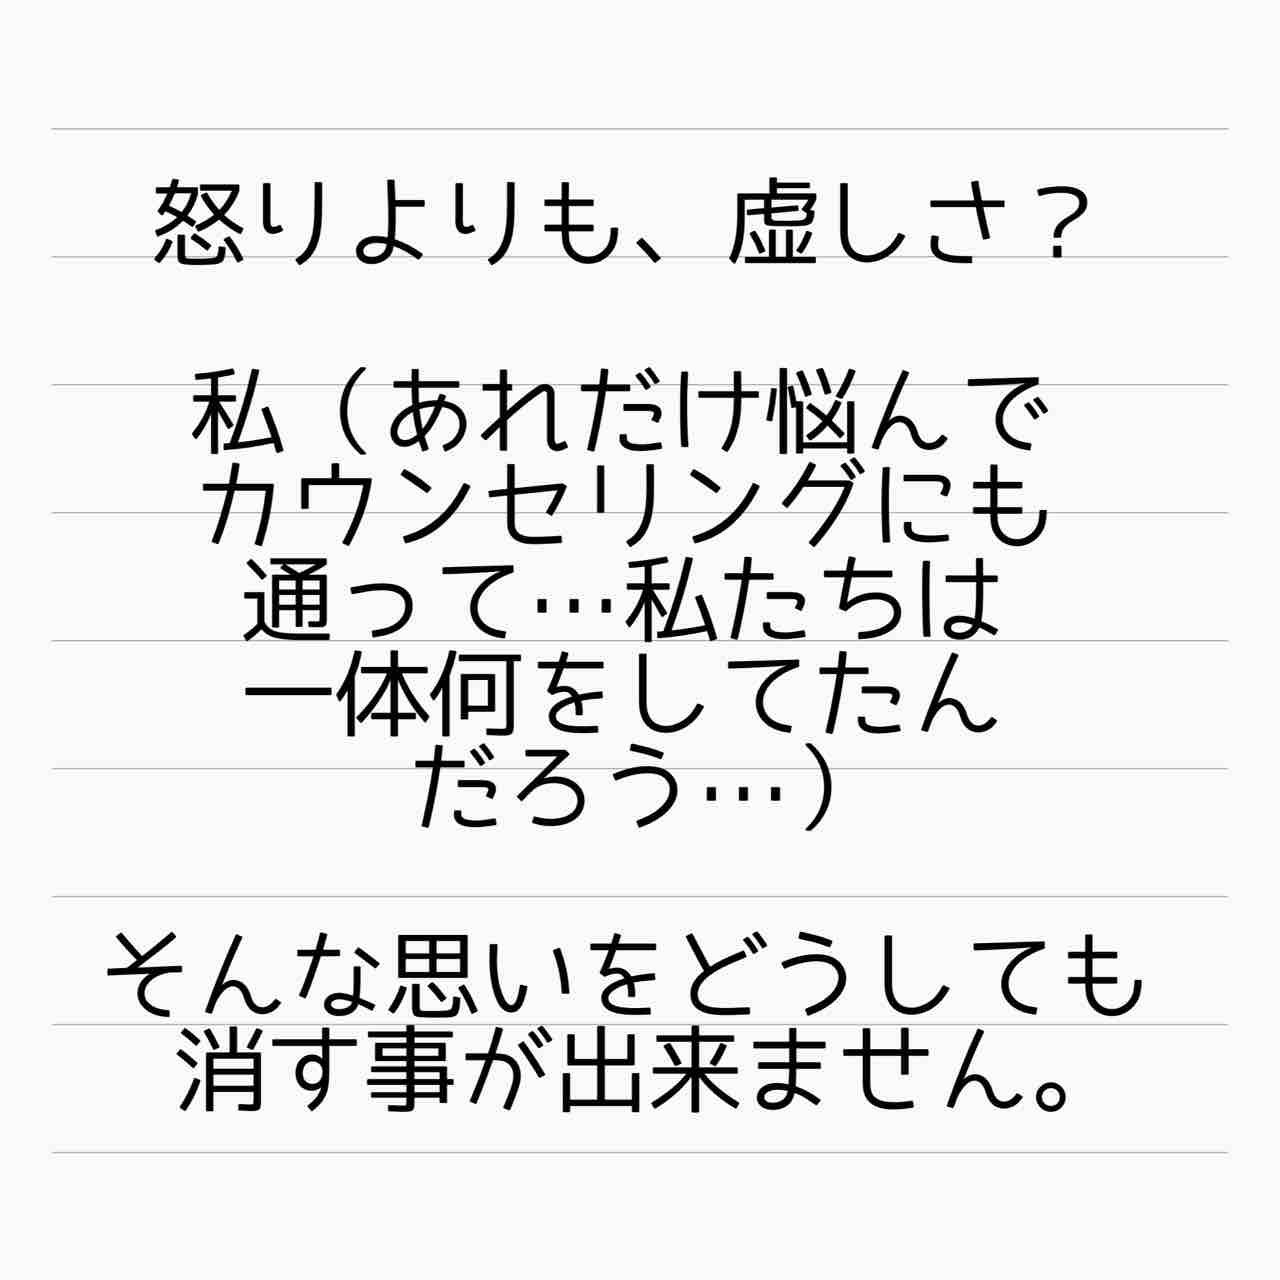 怒りよりも、虚しさ？
私（あれだけ悩んで
カウンセリングにも
通って…私たちは
一体何をしてたん
だろう…）
そんな思いをどうしても
消す事が出来ません。